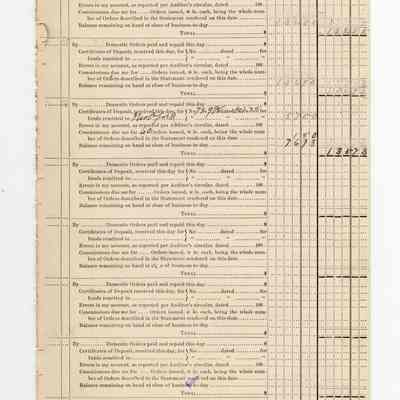 Errors in my account, as reported per Auditor's circular, dated 190
Commissions due me for Orders issued, @ 3c. each, being the whole num-
ber of Orders described in the Statement rendered on this date
Balance remaining on hand at close of business to-day
TOTAL $
By Domestic Orders paid and repaid this day $
Certificates of Deposit, received this day, for No. dated for
funds remitted to " " "
Errors in my account, as reported per Auditor's circular, dated 190
Commissions due me for Orders issued, @ 3c. each, being the whole num-
ber of Orders described in the Statement rendered on this date
Balance remaining on hand at close of business to-day
TOTAL $
By Domestic Orders paid and repaid this day $
Certificates of Deposit, received this day, for No. dated for
funds remitted to New York " " "
Errors in my account, as reported per Auditor's circular, dated 190
Commissions due me for 60 Orders issued, @ 3c. each, being the whole num-
ber of Orders described in the Statement rendered on this date 1 80
Balance remaining on hand at close of business to-day
TOTAL $ 135 73
By Domestic Orders paid and repaid this day $
Certificates of Deposit, received this day, for No. dated for
funds remitted to " " "
Errors in my account, as reported per Auditor's circular, dated 190
Commissions due me for Orders issued, @ 3c. each, being the whole num-
ber of Orders described in the Statement rendered on this date
Balance remaining on hand at close of business to-day
TOTAL $
By Domestic Orders paid and repaid this day $
Certificates of Deposit, received this day, for No. dated for
funds remitted to " " "
Errors in my account, as reported per Auditor's circular, dated 190
Commissions due me for Orders issued, @ 3c. each, being the whole num-
ber of Orders described in the Statement rendered on this date
Balance remaining on hand at close of business to-day
TOTAL $
By Domestic Orders paid and repaid this day $
Certificates of Deposit, received this day, for No. dated for
funds remitted to " " "
Errors in my account, as reported per Auditor's circular, dated 190
Commissions due me for Orders issued, @ 3c. each, being the whole num-
ber of Orders described in the Statement rendered on this date
Balance remaining on hand at close of business to-day
TOTAL $
By Domestic Orders paid and repaid this day $
Certificates of Deposit, received this day, for No. dated for
funds remitted to " " "
Errors in my account, as reported per Auditor's circular, dated 190
Commissions due me for Orders issued, @ 3c. each, being the whole num-
ber of Orders described in the Statement rendered on this date
Balance remaining on hand at close of business to-day
TOTAL $